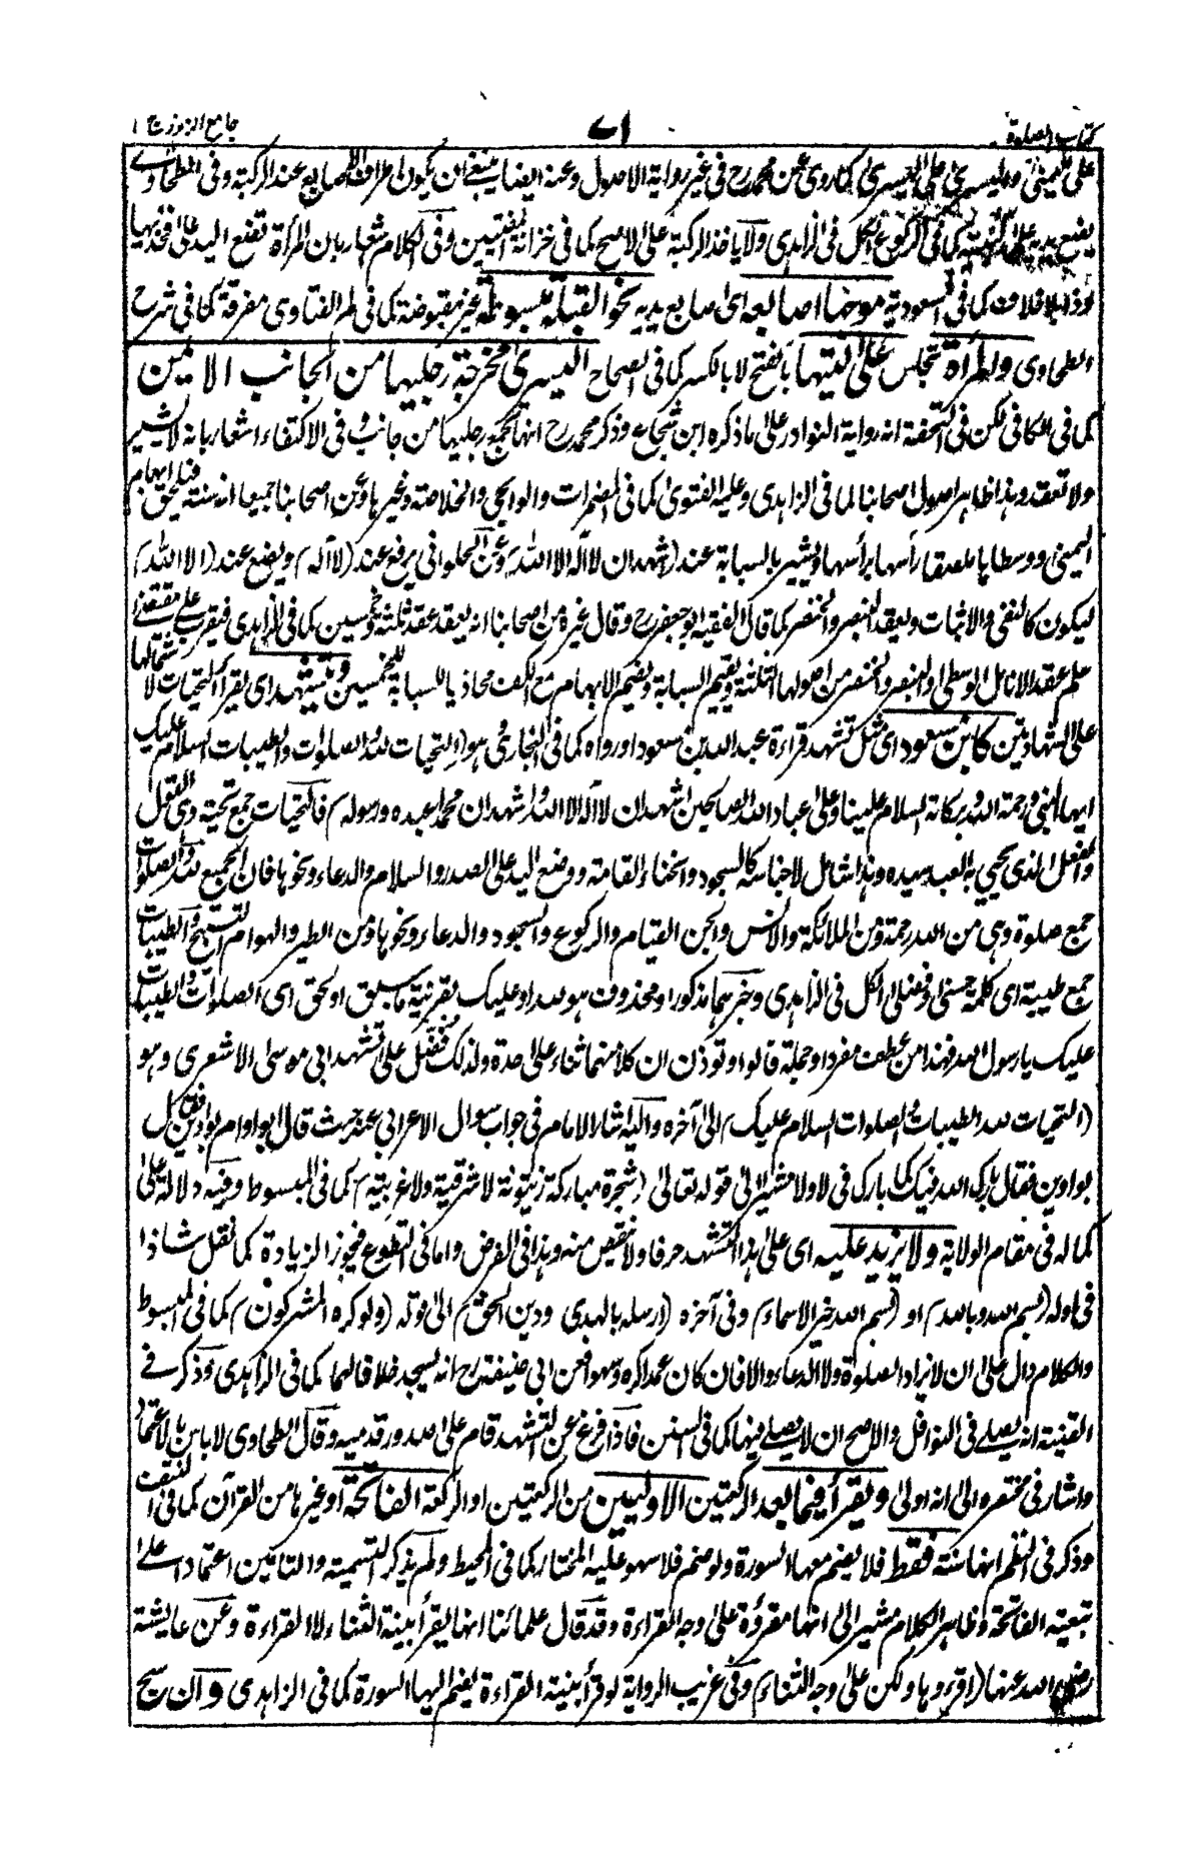 كتاب الصلوة
٧١
جامع الرموز ج ١
على اليمنى واليسرى على اليسرى كما روى عن محمد رح فى غير رواية الاصول وعنه ايضا ينبغى ان يكون اطراف الاصابع عند الركبة وفى الطحاوى
يضع يديه على ركبتيه كما فى الركوع الكل فى الزاهدى ولا ياخذ الركبة على الاصح كما فى خزانة المفتيين وفى الكلام شعار بان المرأة تضع اليد على فخذيها
وذا بلا خلاف كما فى السعودية موجها اصابعه اى اصابع يديه نحو القبلة مبسوطة غير مقبوضة كما فى الفتاوى مفرقة كما فى شرح
الطحاوى والمرأة تجلس على اليتها بالفتح لا بالكسر كما فى الصحاح اليسرى مخرجة رجليها من الجانب الايمن
كما فى الكافى لكن فى التحفة انه رواية النوادر على ما ذكره ابن شجاع وذكر محمد رح انها تجمع رجليها من جانب وفى الاكتفاء اشعار بانه لا يشير
ولا تعقد وهذا ظاهر اصول اصحابنا لما فى الزاهدى وعليه الفتوى كما فى المضمرات والولوالجى والخلاصة وغيرها وعن اصحابنا جميعا انه سنة فيلحق ابهام
اليمنى ووسطاها ملصقا رأسها برأسها ويشير بالسبابة عند (اشهد ان لا اله الا الله) وعن الحلوانى يرفع عند (لا اله) ويضع عند (الا الله)
ليكون كالنفى والاثبات ويعقد البنصر والخنصر كما قال الفقيه ابو جعفر رح وقال غيره من اصحابنا انه يعقد عقد ثلثة وخمسين كما فى الزاهدى
عقد الانامل الوسطى والبنصر والخنصر من اصولها الثلثة ويقيم السبابة ويضم الابهام مع الكف محاذيا للسبابة للخمسين ويتشهد اى يقرأ التحيات لا
على الشهادتين كابن مسعود اى مثل تشهد قراءة عبد الله بن مسعود او رواه كما فى البخارى وهو (التحيات لله والصلوات والطيبات السلام عليك
ايها النبى ورحمة الله وبركاته السلام علينا وعلى عباد الله الصالحين اشهد ان لا اله الا الله واشهد ان محمدا عبده ورسوله) فالتحيات جمع تحية وهى القول
والفعل الذى يحيى به العبد سيده وهذا شامل لاجناسه كالسجود وانحناء القامة ووضع اليد على الصدر والسلام والدعاء ونحوها فان الجميع لله والصلوات
جمع صلوة وهى من الله رحمة ومن الملائكة والانس والجن القيام والركوع والسجود والدعاء ونحوها ومن الطير والهوام التسبيح والطيبات
جمع طيبة اى كلمة حسنى وفضلى الكل فى الزاهدى وخبرهما مذكور او محذوف هو لله او عليك بقرينة ما سبق او لحق اى الصلوات والطيبات
عليك يا رسول الله فهذا من عطف مفرد او جملة قالوا وتوذن ان كلا منهما ثناء على حدة ولذلك فضل على تشهد ابى موسى الاشعرى وهو
(التحيات لله الطيبات والصلوات السلام عليك) الى آخره واليه اشار الامام فى جواب سوال الاعرابى عنه حيث قال ابواو ام بواوين قال
بواوين فقال بارك الله فيك كما بارك فى لا ولا مشيرا الى قوله تعالى (شجرة مباركة زيتونة لا شرقية ولا غربية) كما فى المبسوط وفيه دلالة على
كماله فى مقام الولاية ولا يزيد عليه اى على هذا التشهد حرفا ولا ينقص منه وهذا فى الفرض واما فى التطوع فيجوز الزيادة كما نقل شاذا
فى اوله (بسم الله وبالله) او (بسم الله خير الاسماء) وفى آخره (ارسله بالهدى ودين الحق) الى قوله (ولو كره المشركون) كما فى المبسوط
والكلام دال على ان لا يزاد الصلوة ولا الدعاء والا فان كان عمدا كره وسهوا فعن ابى حنيفة رح انه يسجد خلافا لهما كما فى الزاهدى وذكر فى
القنية انه يصلى فى النوافل والاصح ان لا يصلى فيها كما فى السنن فاذا فرغ عن التشهد قام على صدور قدميه وقال الطحاوى لا بأس بالاعتماد
واشار فى مختصره الى انه اولى ويقرأ فيما بعد الركعتين الاوليين من الركعتين او الركعة الفاتحة او غيرها من القرآن كما فى النتف
وذكر فى النظم انها سنة فقط فلا يضم معها السورة ولو ضم فلا سهو عليه المختار كما فى المحيط ولم يذكر التسمية والتامين اعتمادا على
تبعية الفاتحة وظاهر الكلام مشير الى انها مقرؤة على وجه القراءة وقد قال علمائنا انها يقرأ بنية الثناء لا القراءة وعن عايشة
رضى الله عنها (اقرءوها ولكن على وجه الثناء) وفى غريب الرواية لو قرأ بنية القراءة يضم اليها السورة كما فى الزاهدى وان سبح